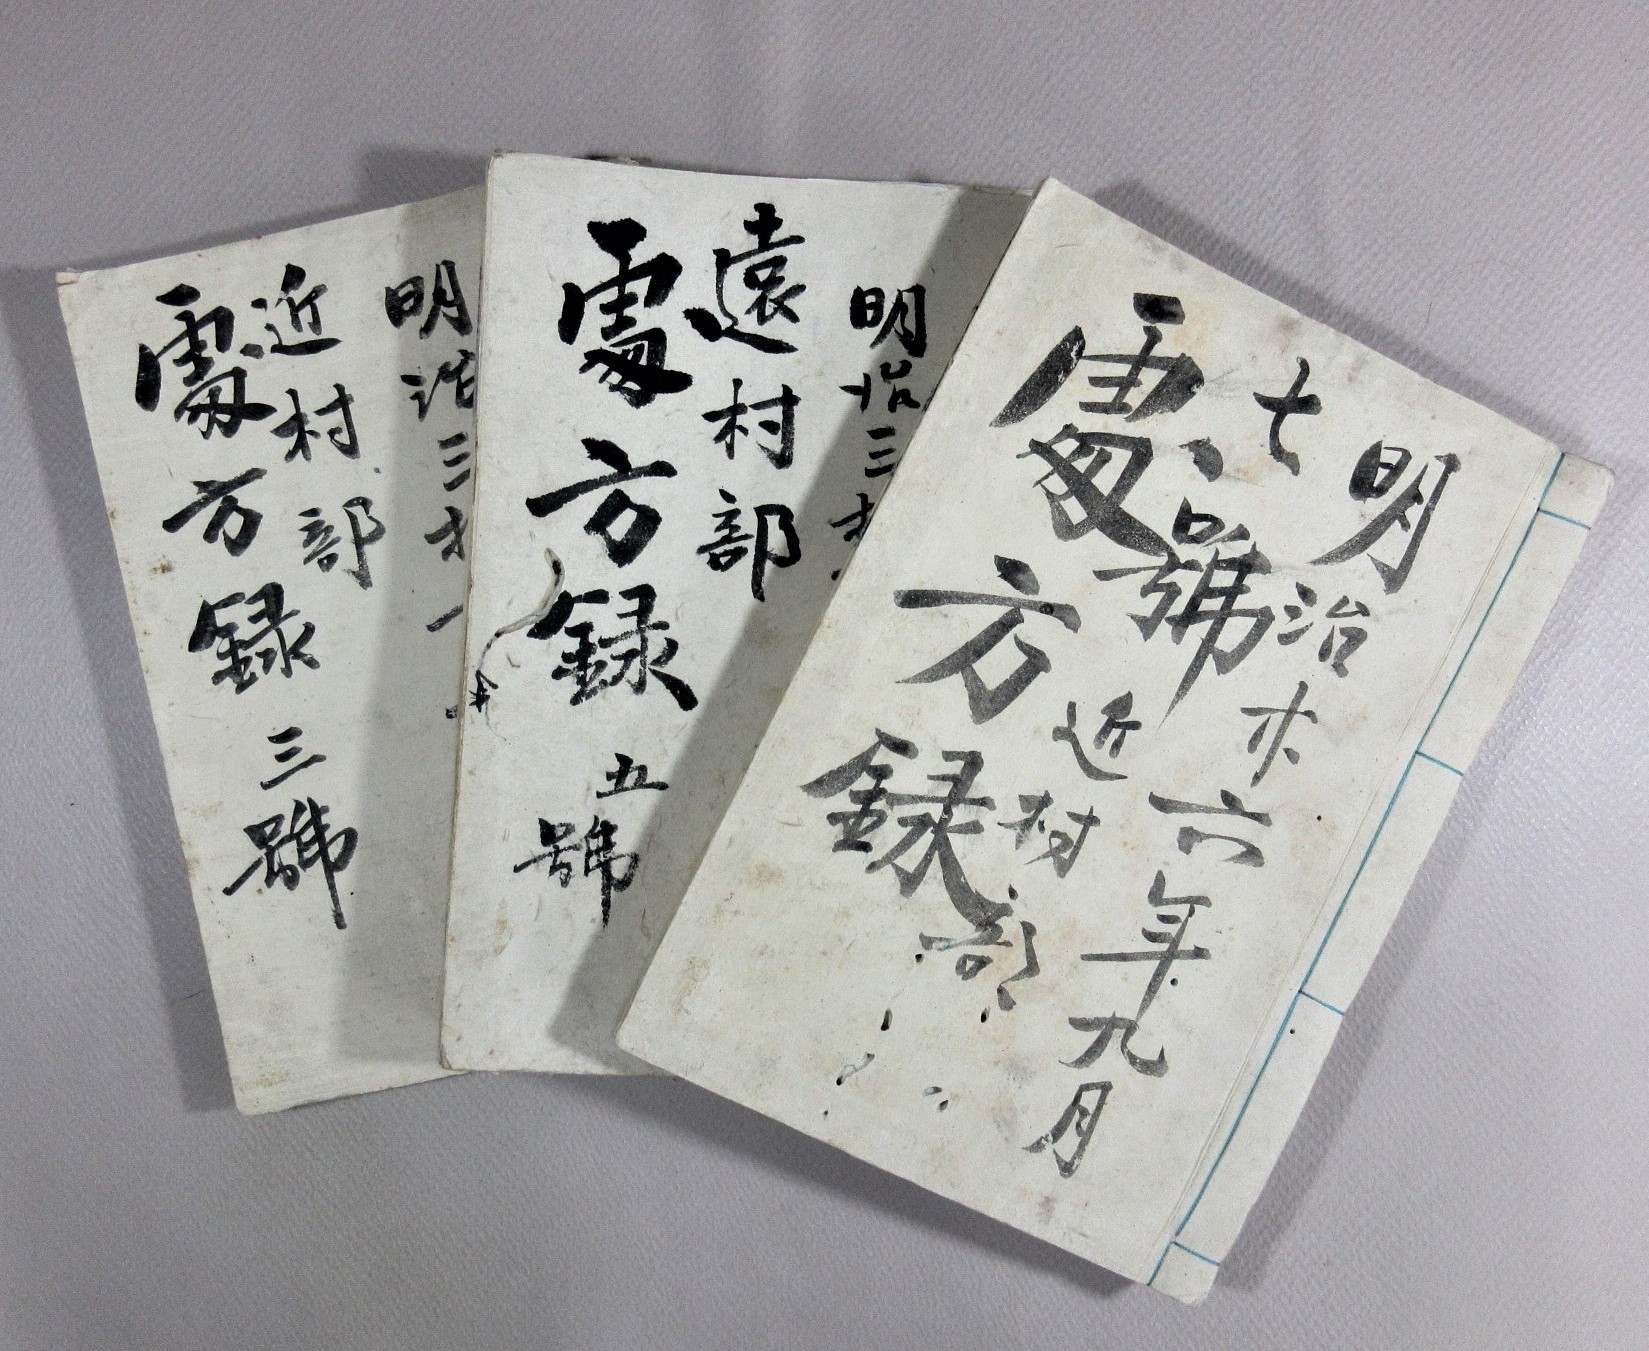 明治卅六年九月
七號
近村部
處方録
明治三
遠村部
處方録 五號
明治三
近村部
處方録 三號